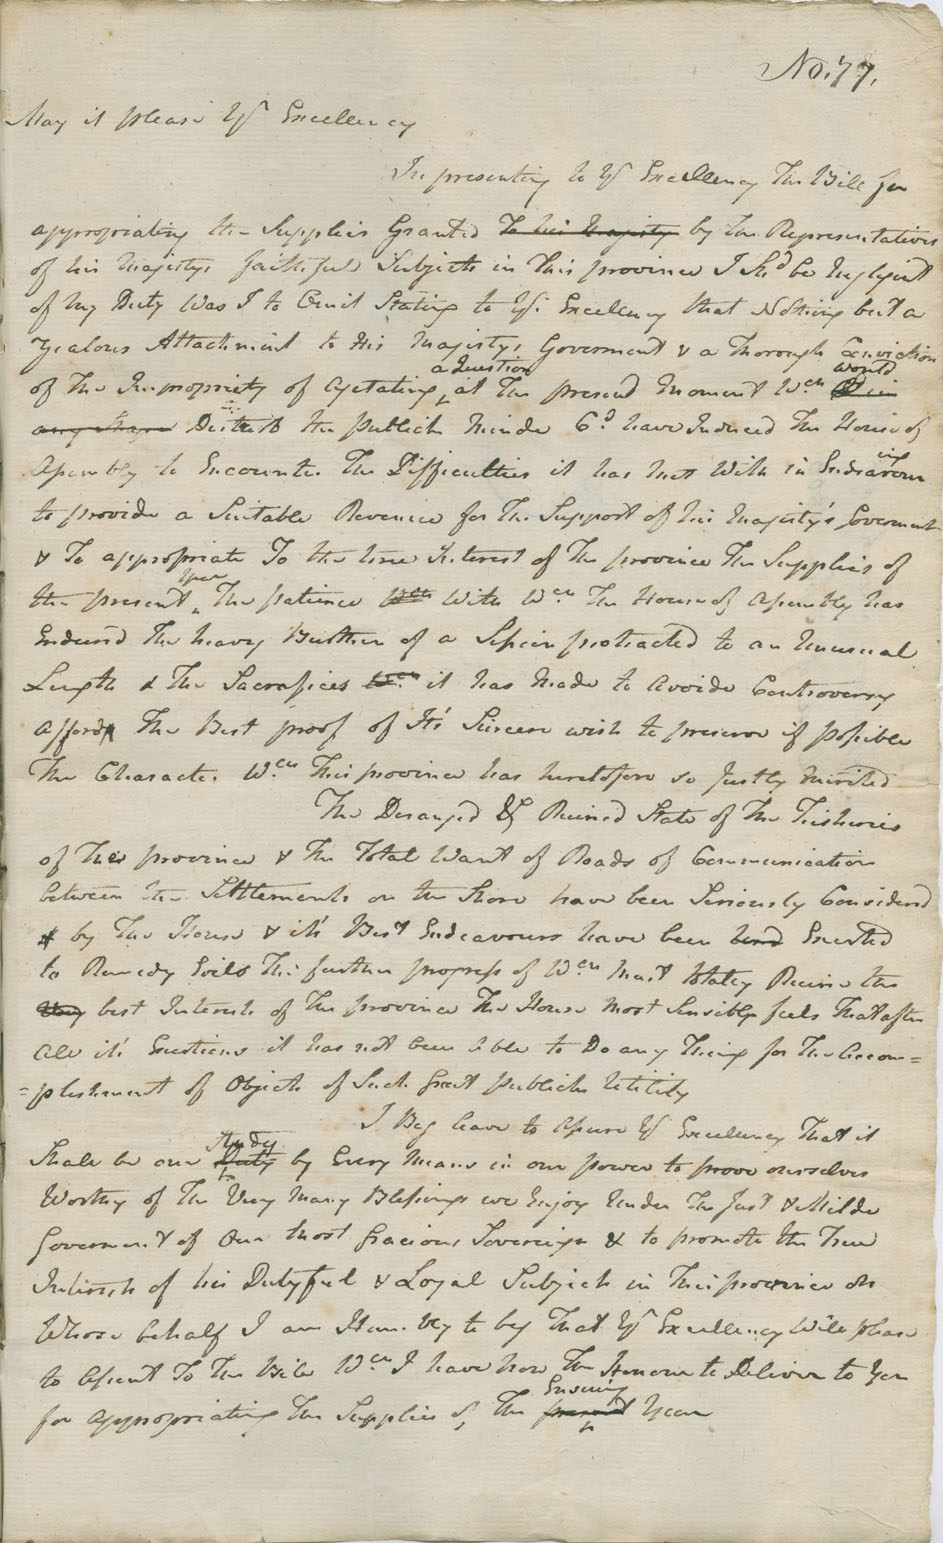 No. 77.
May it please Yr Excellency
In presenting to Yr Excellency The Bill for
appropriating the Supplies Granted To his Majesty by the Representatives
of his Majestys faithful Subjects in this province I Shd be Negligent
of my Duty Was I to Omit Stating to Yr. Excellency that Nothing but a
Zealous Attachment to His Majestys Goverment & a Thorough Conviction
of The Impropriety of Agetating a Question at The present Moment Wch would
any Shape Disturb the publick Minds Cd. have Induced The House of
Assembly to Encounter The Difficulties it has met With in Endeavouring
to provide a Suitable Revenue for The Support of his Majesty's Goverment
& To appropriate To the true Interest of The province The Supplies of
the present year The patience Wch With Wch The House of Assembly has
Endured The heavy Burthen of a Session protracted to an Unusual
Length & The Sacrafices Wch it has Made to Avoide Controversy
affords The Best proof of It's Sincere wish to preserve if possible
The Character Wch This province has heretofore so Justly Merited
The Deranged & Ruined State of The Fisheries
of This province & The Total Want of Roads of Communication
between the Settlements on the Shore have been Seriously Considered
by The House & it's Best Endeavours have been Exerted
to Remedy Evils The further progress of Wch Must totaly Ruine the
Very best Interests of The province The House Most Sensibly feels That after
All it's Exertions it has not been Able to Do any Thing for The Accom=
=plishment of Objects of Such Great publick Utility
I Beg leave to Assure Yr Excellency That it
Shall be our Duty Study by Every Means in our power to prove ourselves
Worthy of The Very Many Blessings we Enjoy Under The Just & Milde
Goverment of Our Most Gracious Sovereign & to promote the True
Interests of his Dutyful & Loyal Subjects in This province on
Whose behalf I am Humbly to beg That Yr Excellency Will please
to Assent To The Bill Wch I have Now The Honour to Deliver to You
for appropriating The Supplies of The present Ensuing Year